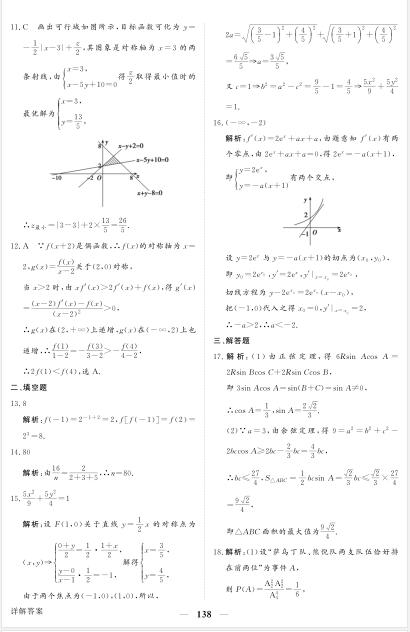 11.C 画出可行域如图所示,目标函数可化为 y=
-1/2|x-3|+z/2,其图象是对称轴为 x=3 的两
条射线,由{x=3, x-5y+10=0 得 z/2 取得最小值时的
最优解为{x=3, y=13/5.
y
8
x-y+2=0
x-5y+10=0
2
-10
-2
O
8
x
x+y-8=0
∴z最小=|3-3|+2×13/5=26/5.
12.A ∵f(x+2)是偶函数,∴f(x)的对称轴为 x=
2,g(x)=f(x)/(x-2)关于(2,0)对称,
当 x>2 时,由 xf′(x)>2f′(x)+f(x),得 g′(x)
=((x-2)f′(x)-f(x))/(x-2)²>0,
∴g(x)在(2,+∞)上递增,g(x)在(-∞,2)上也
递增,∴f(1)/(1-2)=-f(3)/(3-2)>-f(4)/(4-2),
∴2f(1)<f(4),选 A.
二、填空题
13.8
解析:f(-1)=2⁻¹⁺²=2,f[f(-1)]=f(2)=
2³=8.
14.80
解析:由16/n=2/(2+3+5),∴n=80.
15.5x²/9+5y²/4=1
解析:设 F(1,0)关于直线 y=1/2 x 的对称点为
(x,y)⇒{(0+y)/2=1/2·(1+x)/2, (y-0)/(x-1)·1/2=-1, 解得{x=3/5, y=4/5,
由于两个焦点为(-1,0),(1,0),所以,
2a=√((3/5-1)²+(4/5)²)+√((3/5+1)²+(4/5)²)
=6√5/5⇒a=3√5/5,
又 c=1⇒b²=a²-c²=9/5-1=4/5⇒5x²/9+5y²/4
=1.
16.(-∞,-2)
解析:f′(x)=2eˣ+ax+a,由题意知 f′(x)有两
个零点,由 2eˣ+ax+a=0,得 2eˣ=-a(x+1),
即{y=2eˣ, y=-a(x+1)有两个交点,
y
2
-1
O
x
设 y=2eˣ 与 y=-a(x+1)的切点为(x₀,y₀),
即 y₀=2eˣ⁰,y′=2eˣ,y′|ₓ₌ₓ₀=2eˣ⁰,
切线方程为 y-2eˣ⁰=2eˣ⁰(x-x₀),
把(-1,0)代入之得 x₀=0,y′|ₓ₌ₓ₀=2,
∴-a>2,∴a<-2.
三、解答题
17.解析:(1)由正弦定理,得 6Rsin Acos A=
2Rsin Bcos C+2Rsin Ccos B,
即 3sin Acos A=sin(B+C)=sin A≠0,
∴cos A=1/3,sin A=2√2/3.
(2)∵a=3,由余弦定理,得 9=a²=b²+c²-
2bccos A≥2bc-2/3bc=4/3bc,
∴bc≤27/4,S△ABC=1/2bcsin A=√2/3bc≤√2/3×27/4
=9√2/4,
即△ABC面积的最大值为9√2/4.
18.解析:(1)设“萨乌丁队、熊倪队两支队伍恰好排
在前两位”为事件 A,
则 P(A)=A₂²A₂²/A₄⁴=1/6,
详解答案
— 138 —